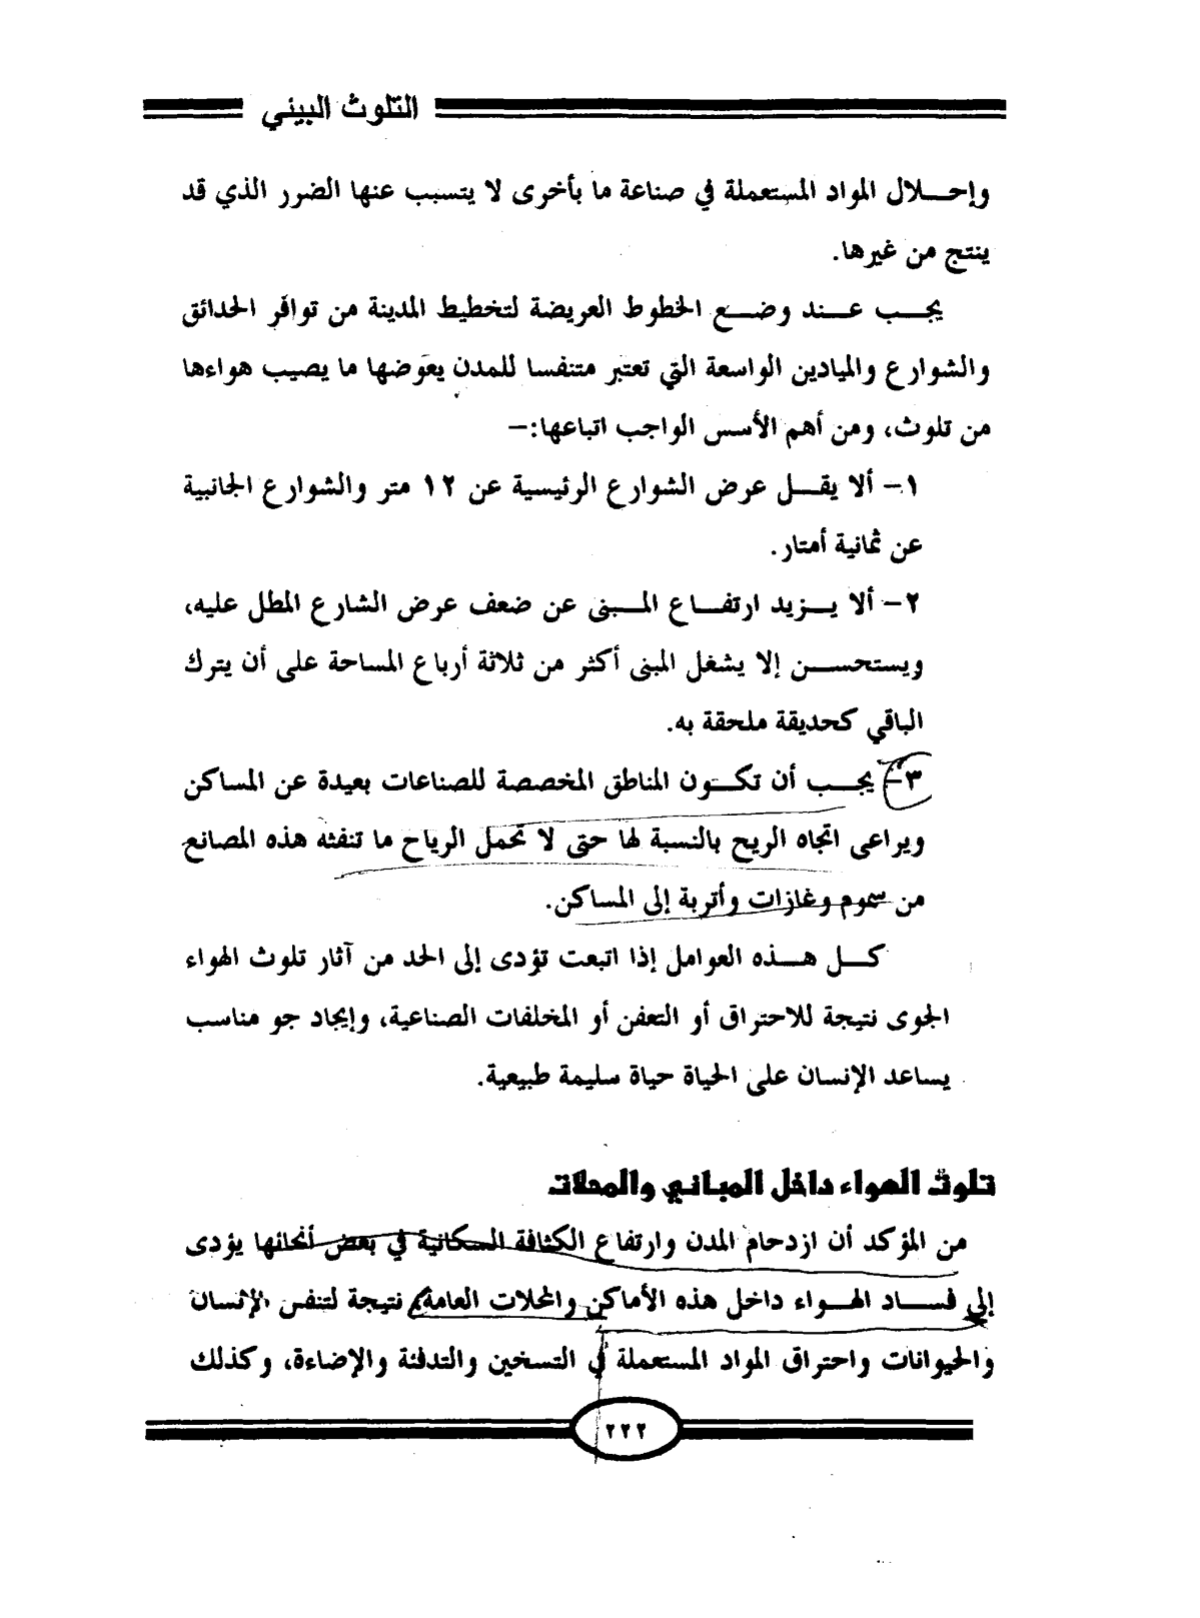 التلوث البيئي
وإحـــلال المواد المستعملة في صناعة ما بأخرى لا يتسبب عنها الضرر الذي قد
ينتج من غيرها.
يجـــب عـــند وضـــع الخطوط العريضة لتخطيط المدينة من توافر الحدائق
والشوارع والميادين الواسعة التي تعتبر متنفسا للمدن يعوضها ما يصيب هواءها
من تلوث، ومن أهم الأسس الواجب اتباعها:–
١- ألا يقـــل عرض الشوارع الرئيسية عن ١٢ متر والشوارع الجانبية
عن ثمانية أمتار.
٢- ألا يـــزيد ارتفـــاع المـــبنى عن ضعف عرض الشارع المطل عليه،
ويستحســـن إلا يشغل المبنى أكثر من ثلاثة أرباع المساحة على أن يترك
الباقي كحديقة ملحقة به.
٣- يجـــب أن تكـــون المناطق المخصصة للصناعات بعيدة عن المساكن
ويراعى اتجاه الريح بالنسبة لها حتى لا تحمل الرياح ما تنفثه هذه المصانع
من سموم وغازات وأتربة إلى المساكن.
كـــل هـــذه العوامل إذا اتبعت تؤدى إلى الحد من آثار تلوث الهواء
الجوى نتيجة للاحتراق أو التعفن أو المخلفات الصناعية، وإيجاد جو مناسب
يساعد الإنسان على الحياة حياة سليمة طبيعية.
تلوث الهواء داخل المباني والمحلات
من المؤكد أن ازدحام المدن وارتفاع الكثافة السكانية في بعض أنحائها يؤدى
إلى فســـاد الهـــواء داخل هذه الأماكن والمحلات العامة، نتيجة لتنفس الإنسان
والحيوانات واحتراق المواد المستعملة في التسخين والتدفئة والإضاءة، وكذلك
٢٢٢